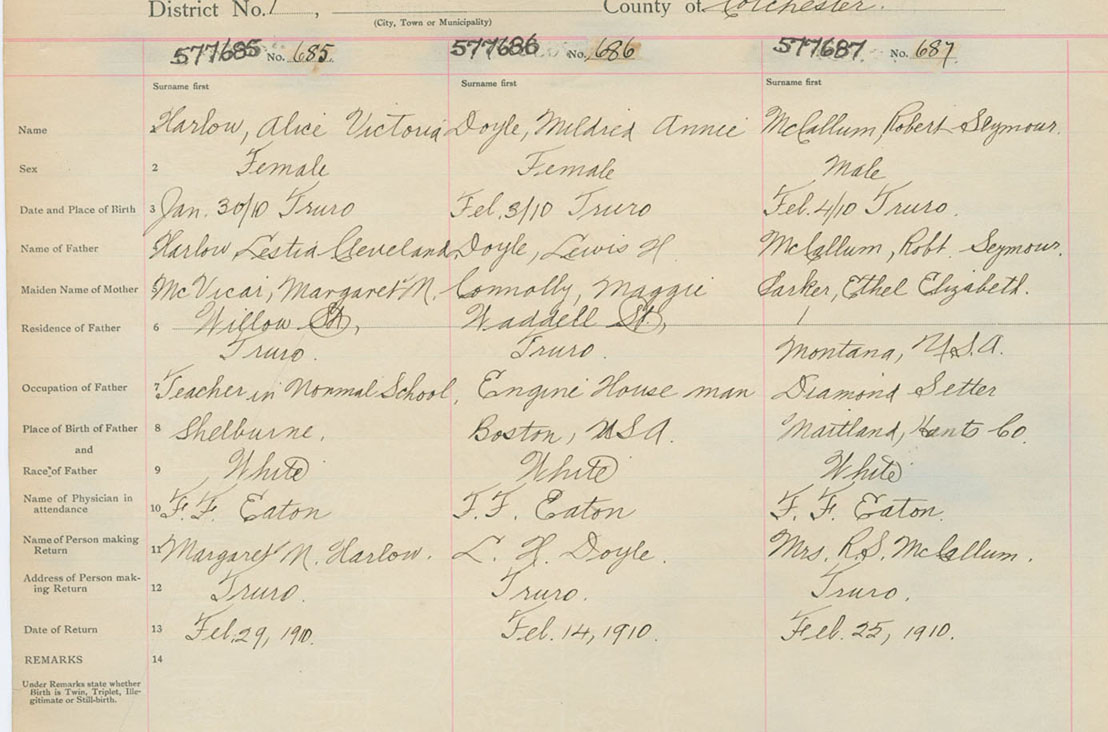 District No. 1, County of Colchester.
(City, Town or Municipality)
577685 No. 685. 577686 No. 686 577687 No. 687
Surname first Surname first Surname first
Name 1 Harlow, Alice Victoria Doyle, Mildred Annie McCallum, Robert Seymour.
Sex 2 Female Female Male
Date and Place of Birth 3 Jan. 30/10 Truro Feb. 3/10 Truro Feb. 4/10 Truro.
Name of Father Harlow, Cleveland Doyle, Lewis H. McCallum, Robt Seymour.
Maiden Name of Mother 5 McVicar, Margaret M. Connolly, Maggie Ethel Elizabeth.
Residence of Father 6 Willow St, Waddell St,
Truro. Truro. Montana, U.S.A.
Occupation of Father 7 Teacher in Normal School, Engine House man Diamond Setter
Place of Birth of Father 8 Shelburne. Boston, USA. Maitland, Hants Co.
and
Race of Father 9 White White White
Name of Physician in
attendance 10 F. F. Eaton F. F. Eaton F. F. Eaton.
Name of Person making
Return 11 Margaret M. Harlow. L. H. Doyle. Mrs. R.S. McCallum.
Address of Person mak-
ing Return 12 Truro. Truro. Truro.
Date of Return 13 Feb. 29, 1910. Feb. 14, 1910. Feb. 25, 1910.
REMARKS 14
Under Remarks state whether
Birth is Twin, Triplet, Ille-
gitimate or Still-birth.